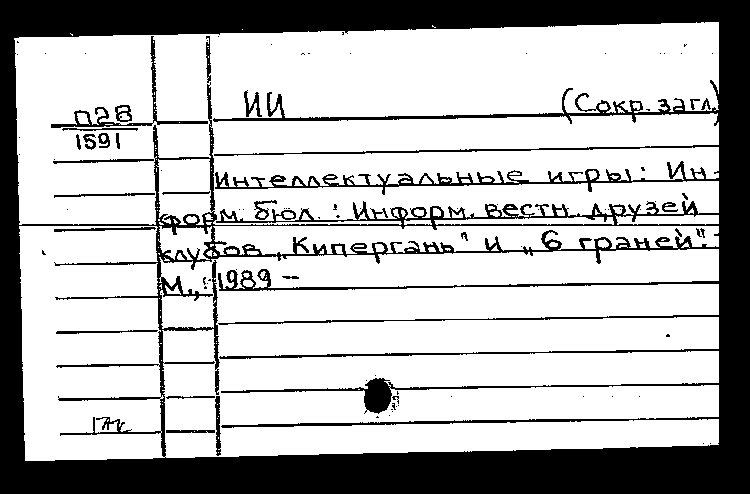 П28
1591
ИИ (Сокр. загл.)
Интеллектуальные игры: Ин-
форм. бюл. : Информ. вестн. друзей
клубов „Кипергань" и „6 граней".-
М., 1989 –